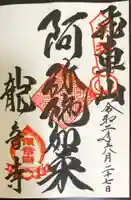 飛車山
令和二年八月二十七日
阿弥陀如来
龍音寺